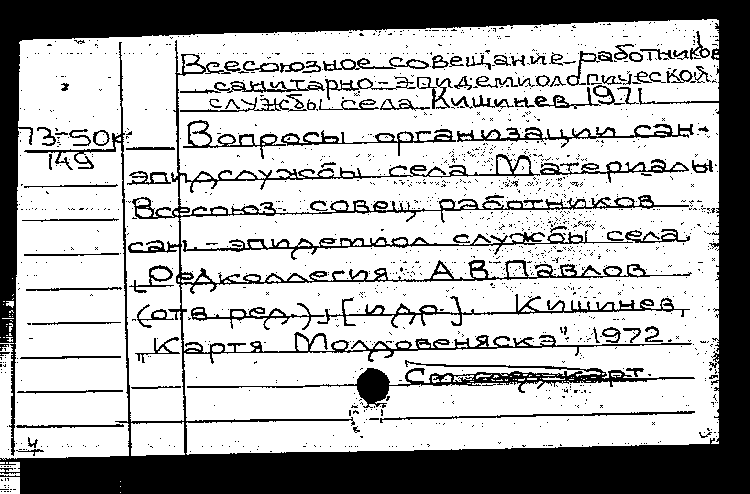 Всесоюзное совещание работников
санитарно-эпидемиологической
службы села. Кишинев. 1971
73-50к
149
Вопросы организации сан-
эпидслужбы села. Материалы
Всесоюз. совещ. работников
сан.-эпидемиол. службы села.
[Редколлегия: А.В. Павлов
(отв. ред.)] [и др.]. Кишинев,
"Картя Молдовеняскэ", 1972.
См. след. карт.
4